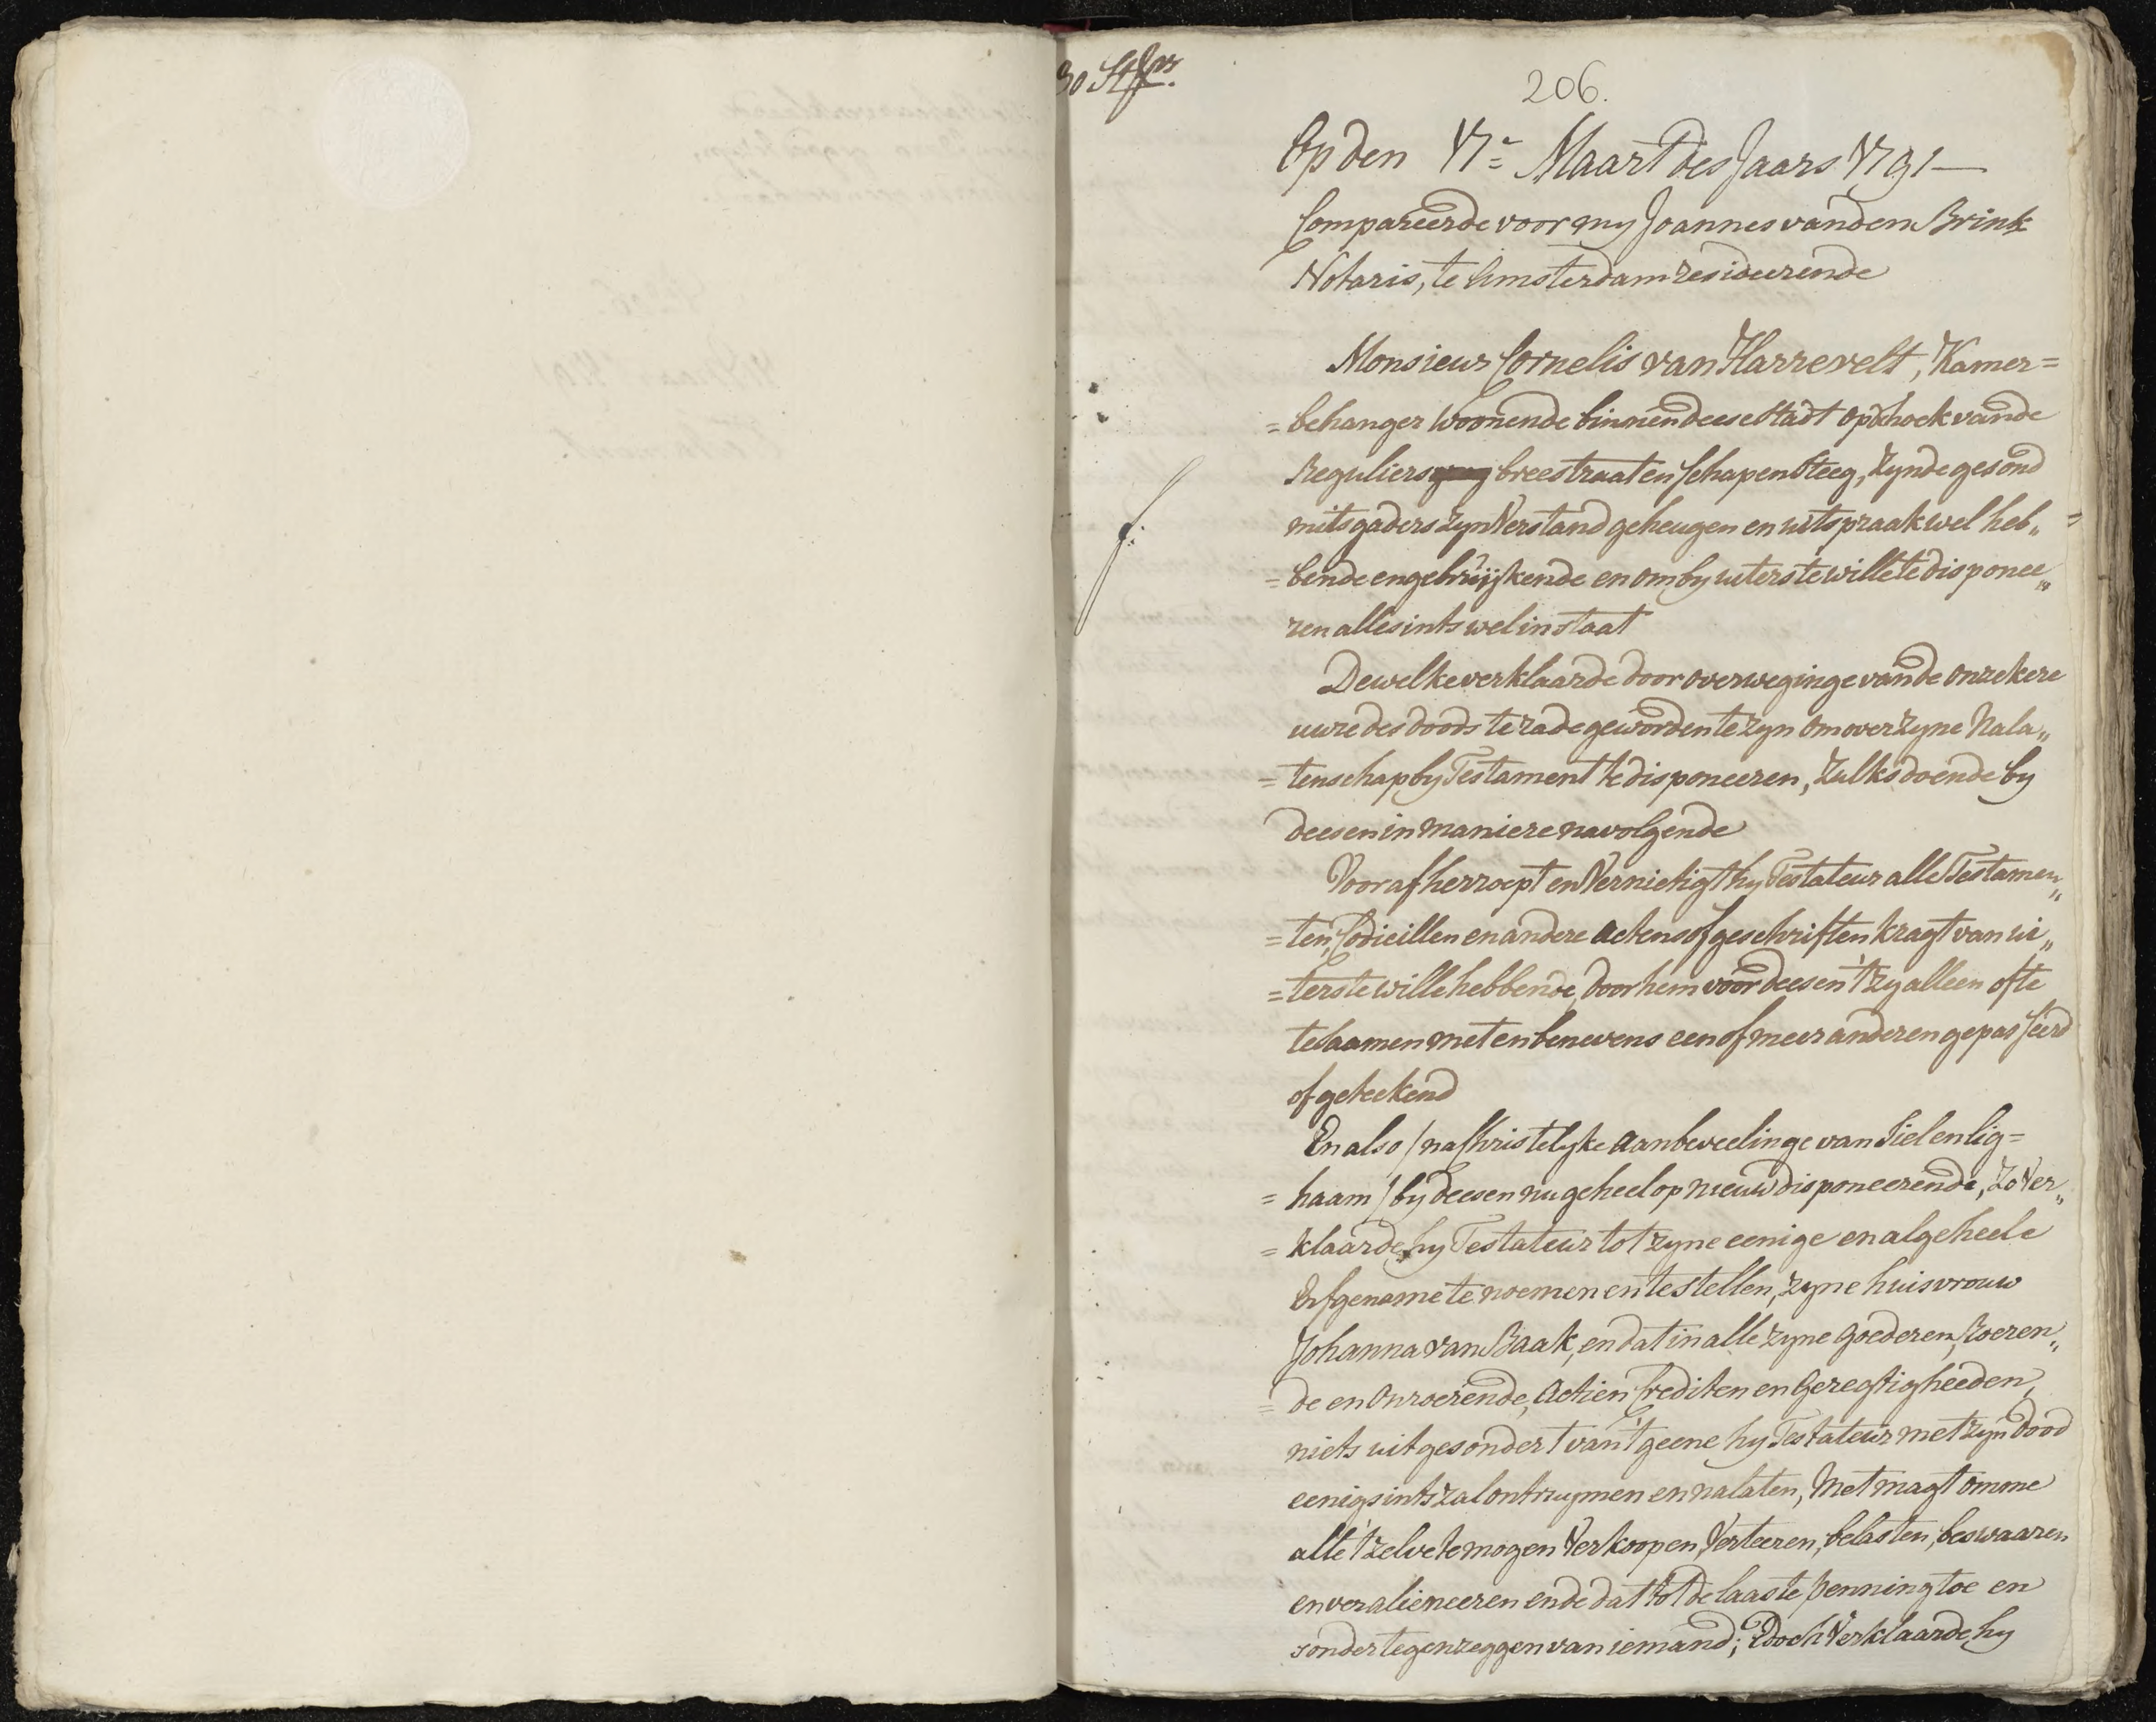 30 St
206.
Op den 17e Maart des Jaars 1791 —
Compareerde voor my Joannes van den Brink
Notaris, te Amsterdam resideerende
Monsieur Cornelis van Harrevelt, Kamer=
=behanger woonende binnen deese Stadt op d'hoek vande
Reguliers breestraat en Schapensteeg, zynde gesond
mitsgaders zyn Verstand geheugen en uitspraak wel heb„
=bende en gebruijkende en om by uiterste wille te disponee„
ren allesints wel in staat
Dewelke verklaarde door overweginge vande onzekere
uure des doods te rade geworden te zyn om over zyne Nala„
=tenschap by Testament te disponeeren, Zulks doende by
deesen in maniere navolgende
Voor af herroept en Vernietigt hy Testateur alle Testamen„
=ten, Codicillen en andere Actens of geschriften kragt van ui„
=terste wille hebbende, door hem voor deesen 't zy alleen ofte
te saamen met en benevens een of meer anderen gepasseerd
of geteekend
En also / na Christelyke aanbeveelinge van Siel en Lig=
=haam / by deesen nu geheel op nieuw disponeerende, Zo Ver„
=klaarde hy Testateur tot zyne eenige en algeheele
Erfgename te noemen en te stellen, zyne huisvrouw
Johanna van Baak, en dat in alle zyne goederen, Roeren„
=de en Onroerende, Actien Crediten en Geregtigheeden,
niets uitgesondert van 't geene hy Testateur met zyn dood
eenigsints zal ontruymen en nalaten, Met magt omme
alle 't zelve te mogen Verkoopen, Verteeren, belasten, beswaaren
en veralieneeren ende dat tot de laaste penning toe en
sonder tegenzeggen van iemand; Edoch Verklaarde hy